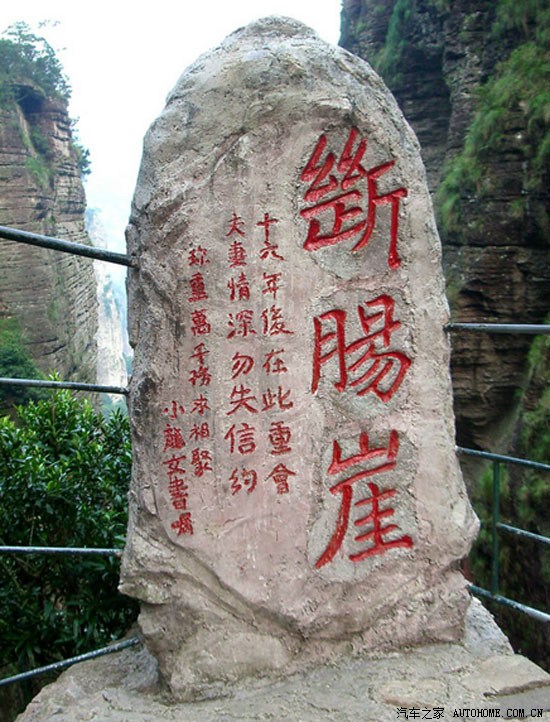 斷腸崖
十六年後在此重會
夫妻情深勿失信約
珍重萬千務求相聚
小龍女書囑
汽车之家 AUTOHOME.COM.CN